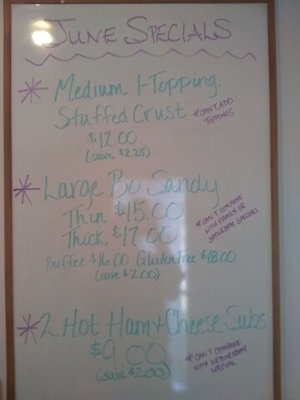 JUNE SPECIALS
* Medium 1-Topping
Stuffed Crust
* CAN'T ADD
TOPPINGS
$12.00
(save $2.25)
* Large Bo Sandy
Thin $15.00
Thick $17.00
* CAN'T COMBINE
WITH FAMILY OR
SPECIALS
Buffet $16.00 Gluten Free $18.00
(save $2.00)
* 2 Hot Ham & Cheese Subs
$9.00
(save $2.00)
* CAN'T COMBINE
WITH WEDNESDAY
SPECIAL